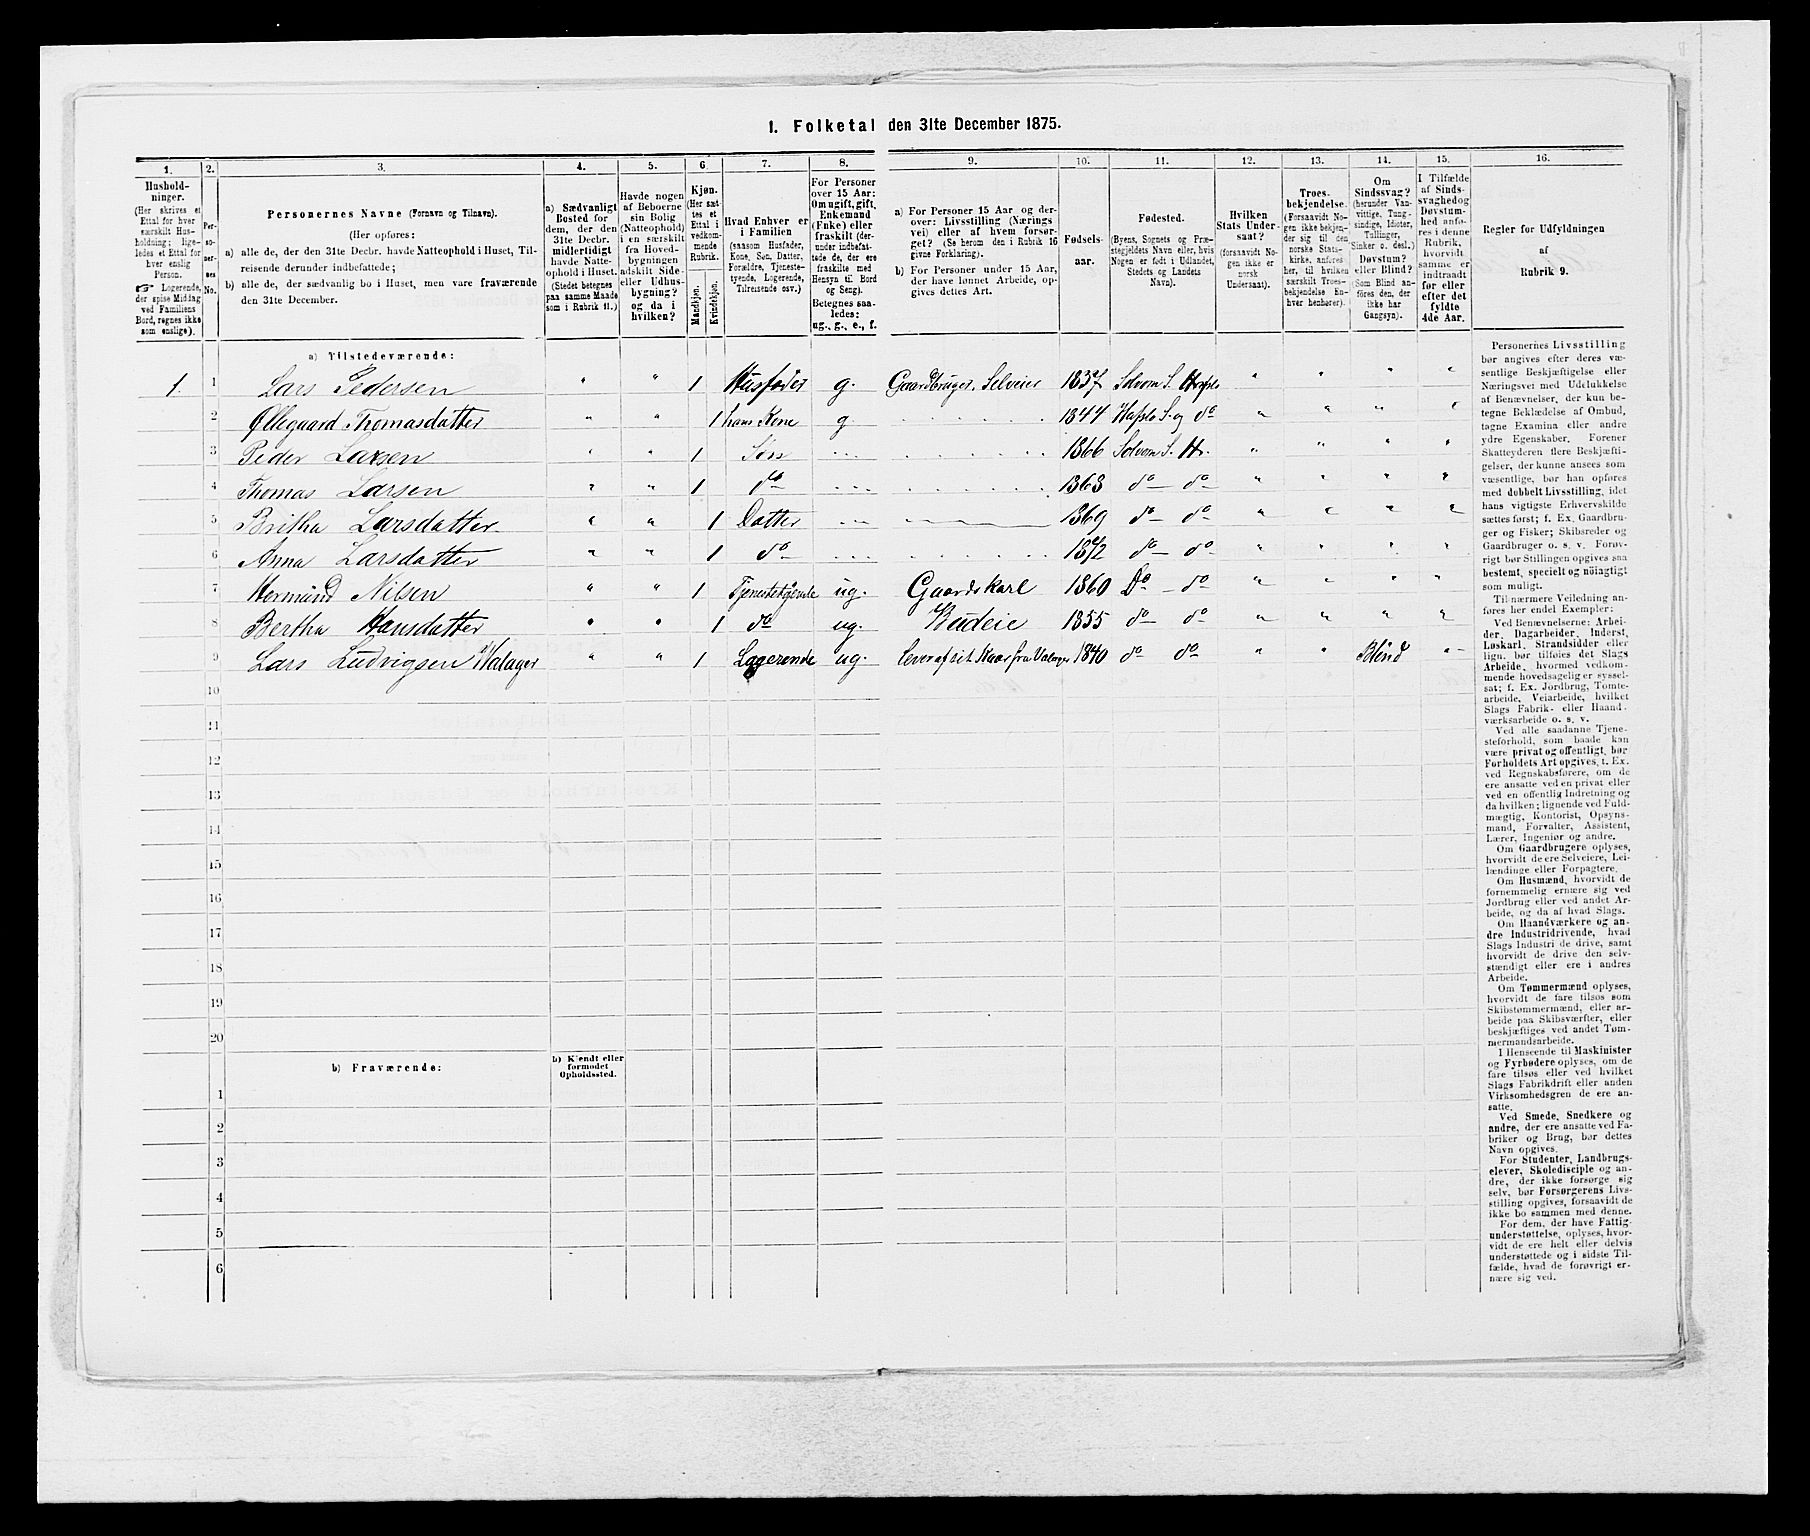 1. Folketal den 31te December 1875.
1. 2. 3. 4. 5. 6. 7. 8. 9. 10. 11. 12. 13. 14. 15. 16.
Hushold-
ninger.
(Her skrives et
Ettal for hver
særskilt Hus-
holdning; lige-
ledes et Ettal for
hver enslig
Person.
☞ Logerende,
der spise Middag
ved Familiens
Bord, regnes ikke
som enslige).
Per-
so-
ner-
nes
No.
Personernes Navne (Fornavn og Tilnavn).
(Her opføres:
a) alle de, der den 31te Decbr. havde Natteophold i Huset, Til-
reisende derunder indbefattede;
b) alle de, der sædvanlig bo i Huset, men vare fraværende
den 31te December.
a) Sædvanligt
Bosted for
dem, der den
31te Decbr.
midlertidigt
havde Natte-
ophold i Huset.
(Stedet betegnes
paa samme Maade
som i Rubrik 11.)
Havde nogen
af Beboerne
sin Bolig
(Natteophold)
i en særskilt
fra Hoved-
bygningen
adskilt Side-
eller Udhus-
bygning?
og da i
hvilken?
Kjøn.
(Her sæt-
tes et
Ettal i
vedkom-
mende
Rubrik.
Mandkjøn.
Kvindekjøn.
Hvad Enhver er
i Familien
(saasom Husfader,
Kone, Søn, Datter,
Forældre, Tjeneste-
tyende, Logerende,
Tilreisende osv.)
For Personer
over 15 Aar:
Om ugift, gift,
Enkemand
(Enke) eller
fraskilt (der-
under indbefat-
tede de, der ere
fraskilte med
Hensyn til Bord
og Seng).
Betegnes saa-
ledes:
ug., g., e., f.
a) For Personer 15 Aar og der-
over: Livsstilling (Nærings
vei) eller af hvem forsør-
get? (Se herom den i Rubrik 16
givne Forklaring).
b) For Personer under 15 Aar,
der have lønnet Arbeide, op-
gives dettes Art.
Fødsels-
aar.
Fødested.
(Byens, Sognets og Præ-
stegjeldets Navn eller, hvis
Nogen er født i Udlandet,
Stedets og Landets
Navn).
Hvilken
Stats Under-
saat?
(forsaavidt No-
gen ikke er
norsk
Undersaat).
Troes-
bekjendelse.
(Forsaavidt No-
gen ikke bekjen-
der sig til den
norske Stats-
kirke, anføres
her, til hvilken
særskilt Troes-
bekjendelse En-
hver henhører).
Om
Sindssvag?
(herunder Van-
vittige, Tung-
sindige, Idioter,
Tullinger,
Sinker o. desl.)
Døvstum?
eller Blind?
(Som Blind an-
føres den, der
ikke har
Gangsyn).
I Tilfælde
af Sinds-
svaghed og
Døvstum-
hed anfø-
res i denne
Rubrik,
hvorvidt
samme er
indtraadt
før eller
efter det
fyldte
4de Aar.
Regler for Udfyldningen
af
Rubrik 9.
a) Tilstedeværende:
1. 1 Lars Pedersen " " 1 Husfader g. Gaardbruger, Selveier 1837 Solvorn S. Hafslo " " " "
2 Øllegaard Thomasdatter " " 1 hans Kone g 1844 Hafslo S. og do " " " "
3 Peder Larsen " " 1 Søn 1866 Solvorn S. H. " " " "
4 Thomas Larsen " " 1 do 1868 do — do " " " "
5 Britha Larsdatter " " 1 Datter 1869 do — do " " " "
6 Anna Larsdatter " " 1 do 1872 do — do " " " "
7 Hermund Nilsen " " 1 Tjenestetyende ug. Gaardskarl 1860 Do — do " " " "
8 Bertha Hansdatter " " 1 do ug. Budeie 1855 do — do " " " "
9 Lars Ludvigsen Walager " " 1 Logerende ug. lever af sit Kaar fra Valager 1840 do do " " Blind "
10
11
12
13
14
15
16
17
18
19
20
b) Fraværende:
b) Kjendt eller
formodet
Opholdssted.
1
2
3
4
5
6
Personernes Livsstilling
bør angives efter deres væ-
sentlige Beskjæftigelse eller
Næringsvei med Udelukkelse
af Benævnelser, der kun be-
tegne Beklædelse af Ombud,
tagne Examina eller andre
ydre Egenskaber. Forener
Skatteyderen flere Beskjæfti-
gelser, der kunne ansees som
væsentlige, bør han opføres
med dobbelt Livsstilling, idet
hans vigtigste Erhvervskilde
sættes først; f. Ex. Gaardbru-
ger og Fisker; Skibsreder og
Gaardbruger o. s. v. Forøv-
rigt bør Stillingen opgives saa
bestemt, specielt og nöiagtigt
som muligt.
Til nærmere Veiledning an-
føres her endel Exempler:
Ved Benævnelserne: Arbei-
der, Dagarbeider, Inderst,
Løskarl, Strandsidder eller
lign. bør tilføies det Slags
Arbeide, hvormed vedkom-
mende hovedsagelig er syssel-
sat; f. Ex. Jordbrug, Tomte-
arbeide, Veiarbeide, hvilket
Slags Fabrik- eller Haand-
værksarbeide o. s. v.
Ved alle saadanne Tjene-
steforhold, som baade kan
være privat og offentligt, bør
Forholdets Art opgives, t. Ex.
ved Regnskabsførere, om de
ere ansatte ved en privat eller
ved en offentlig Indretning og
da hvilken; lignende ved Fuld-
mægtig, Kontorist, Opsyns-
mand, Forvalter, Assistent,
Lærer, Ingeniør og andre.
Om Gaardbrugere oplyses,
hvorvidt de ere Selveiere, Lei-
lændinge eller Forpagtere.
Om Husmænd, hvorvidt de
fornemmelig ernære sig ved
Jordbrug eller ved andet Ar-
beide, og da af hvad Slags.
Om Haandværkere og an-
dre Industridrivende, hvad
Slags Industri de drive, samt
hvorvidt de drive den selv-
stændigt eller ere i andres
Arbeide.
Om Tømmermænd oplyses,
hvorvidt de fare tilsøs som
Skibstømmermænd, eller ar-
beide paa Skibsværfter, eller
beskjæftiges ved andet Tøm-
mermandsarbeide.
I Henseende til Maskinister
og Fyrbødere oplyses, om de
fare tilsøs eller ved hvilket
Slags Fabrikdrift eller anden
Virksomhedsgren de ere an-
satte.
Ved Smede, Snedkere og
andre, der ere ansatte ved Fa-
briker og Brug, bør dettes
Navn opgives.
For Studenter, Landbrugs-
elever, Skoledisciple og an-
dre, der ikke forsørge sig
selv, bør Forsørgerens Livs-
stilling opgives, forsaavidt de
ikke bo sammen med denne.
For dem, der have Fattig-
understøttelse, oplyses, hvor-
vidt de ere helt eller delvis
understøttede og i sidste Til-
fælde, hvad de forøvrigt er-
nære sig ved.